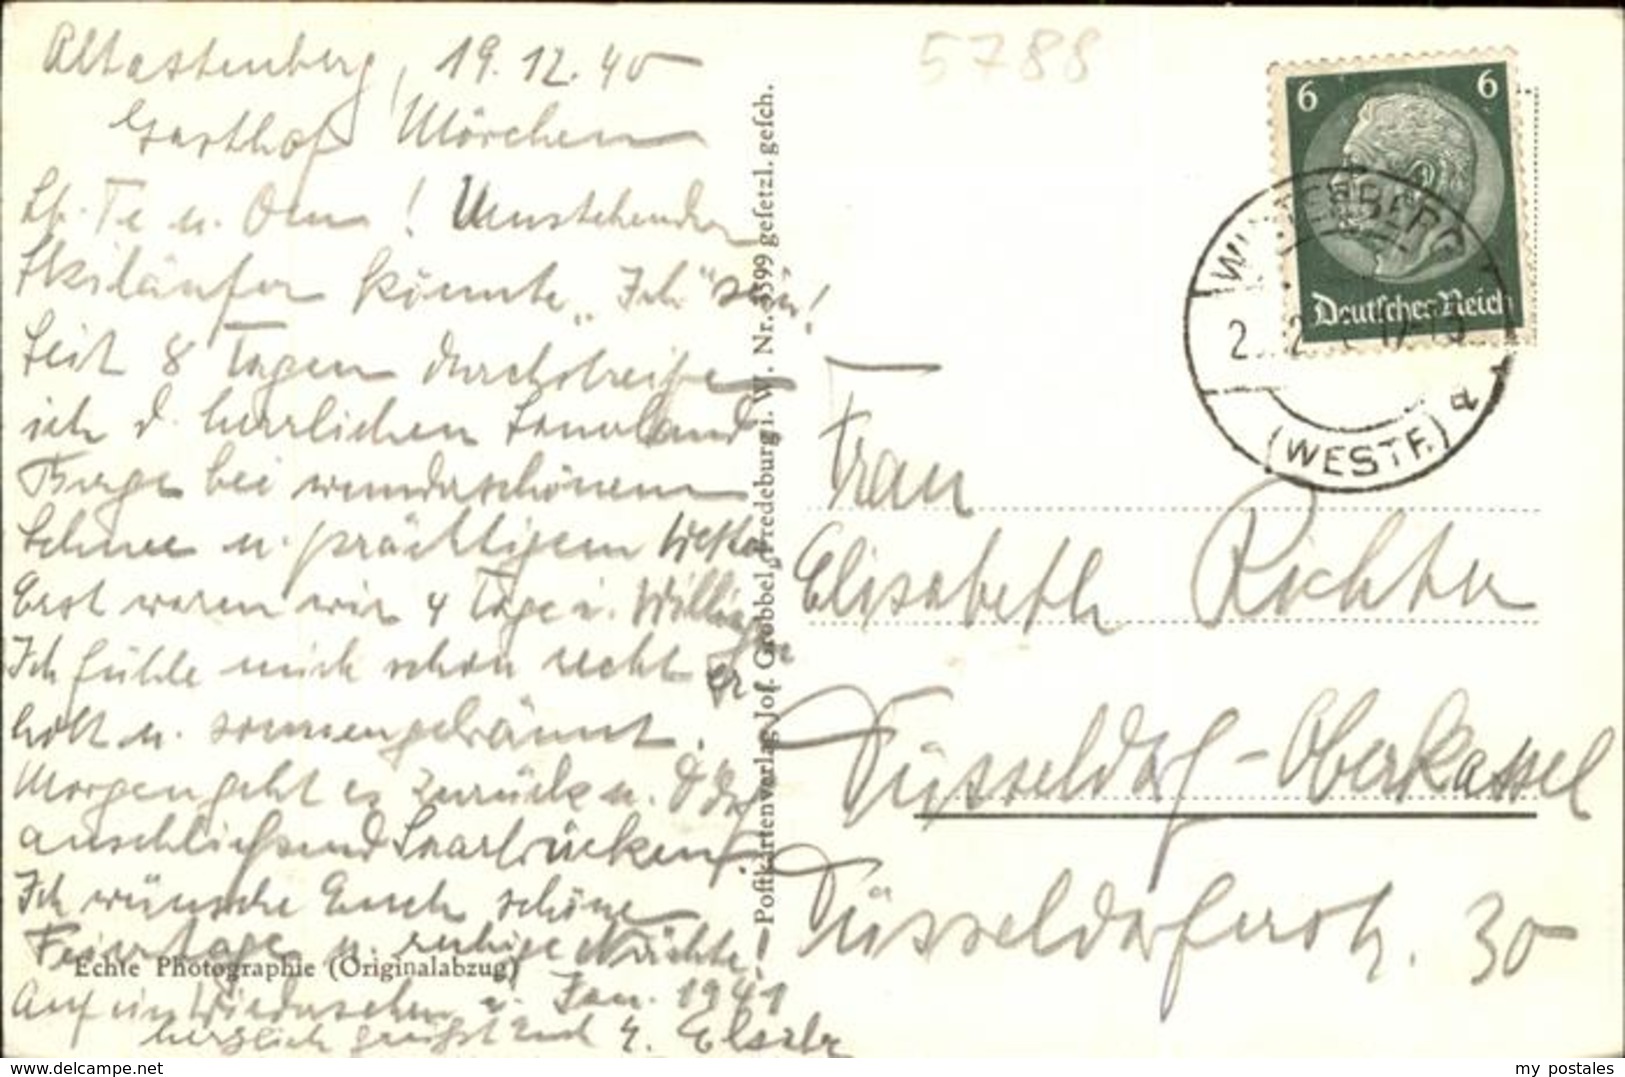 Altastenberg, 19.12.40
Gasthof Mörchen
Lb. Te u. Om! Umstehender
Skiläufer könnte „Ich“ sein!
Seit 8 Tagen durchstreife
ich d. herrlichen Sauerland
Berge bei wunderschönem
Schnee u. prächtigem Wetter
Erst waren wir 4 Tage i. Willingen
Ich fühle mich schon recht er
holt u. sonnengebräunt.
Morgen geht es zurück n. Ddf
anschließend Saarbrücken.
Ich wünsche Euch schöne
Feiertage u. ruhige Nächte!
Auf ein Wiedersehen i. Jan. 1941
herzlich grüßt Euch
Echte Photographie (Originalabzug)
Postkartenverlag Jos. Grobbel, Fredeburg i. W. Nr. 3599 gesetzl. gesch.
5788
6 6
Deutsches Reich
WINTERBERG
(WESTF.)
Frau
Elisabeth Richter
Düsseldorf-Oberkassel
Düsseldorferstr. 30
my postales